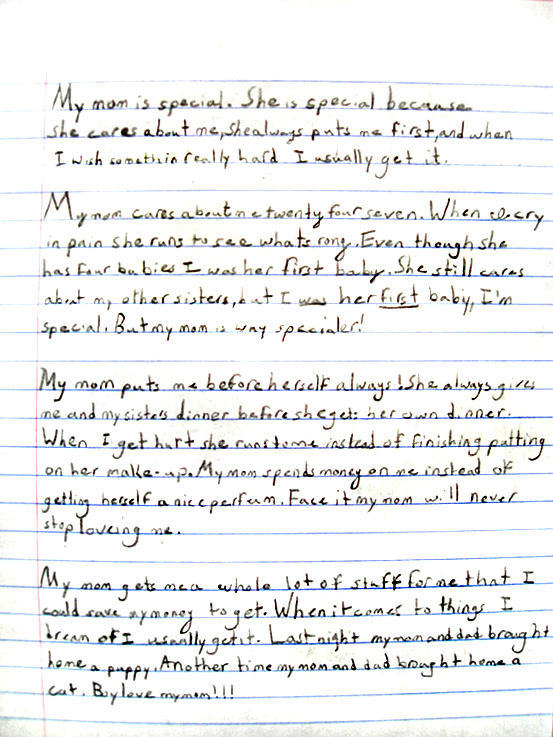 My mom is special. She is special because
she cares about me, she always puts me first, and when
I wish somethin really hard I usually get it.
My mom cares about me twenty four seven. When I cry
in pain she runs to see whats rong. Even though she
has four babies I was her first baby. She still cares
about my other sisters, but I was her first baby, I'm
special. But my mom is way specialer!
My mom puts me before herself always! She always gives
me and my sisters dinner before she gets her own dinner.
When I get hurt she runs to me instead of finishing putting
on her make-up. My mom spends money on me instead of
getting herself a nice perfum. Face it my mom will never
stop loveing me.
My mom gets me a whole lot of stuff for me that I
could save my money to get. When it comes to things I
dream of I usually get it. Last night my mom and dad brought
home a puppy. Another time my mom and dad brought home a
cat. Boy love my mom!!!